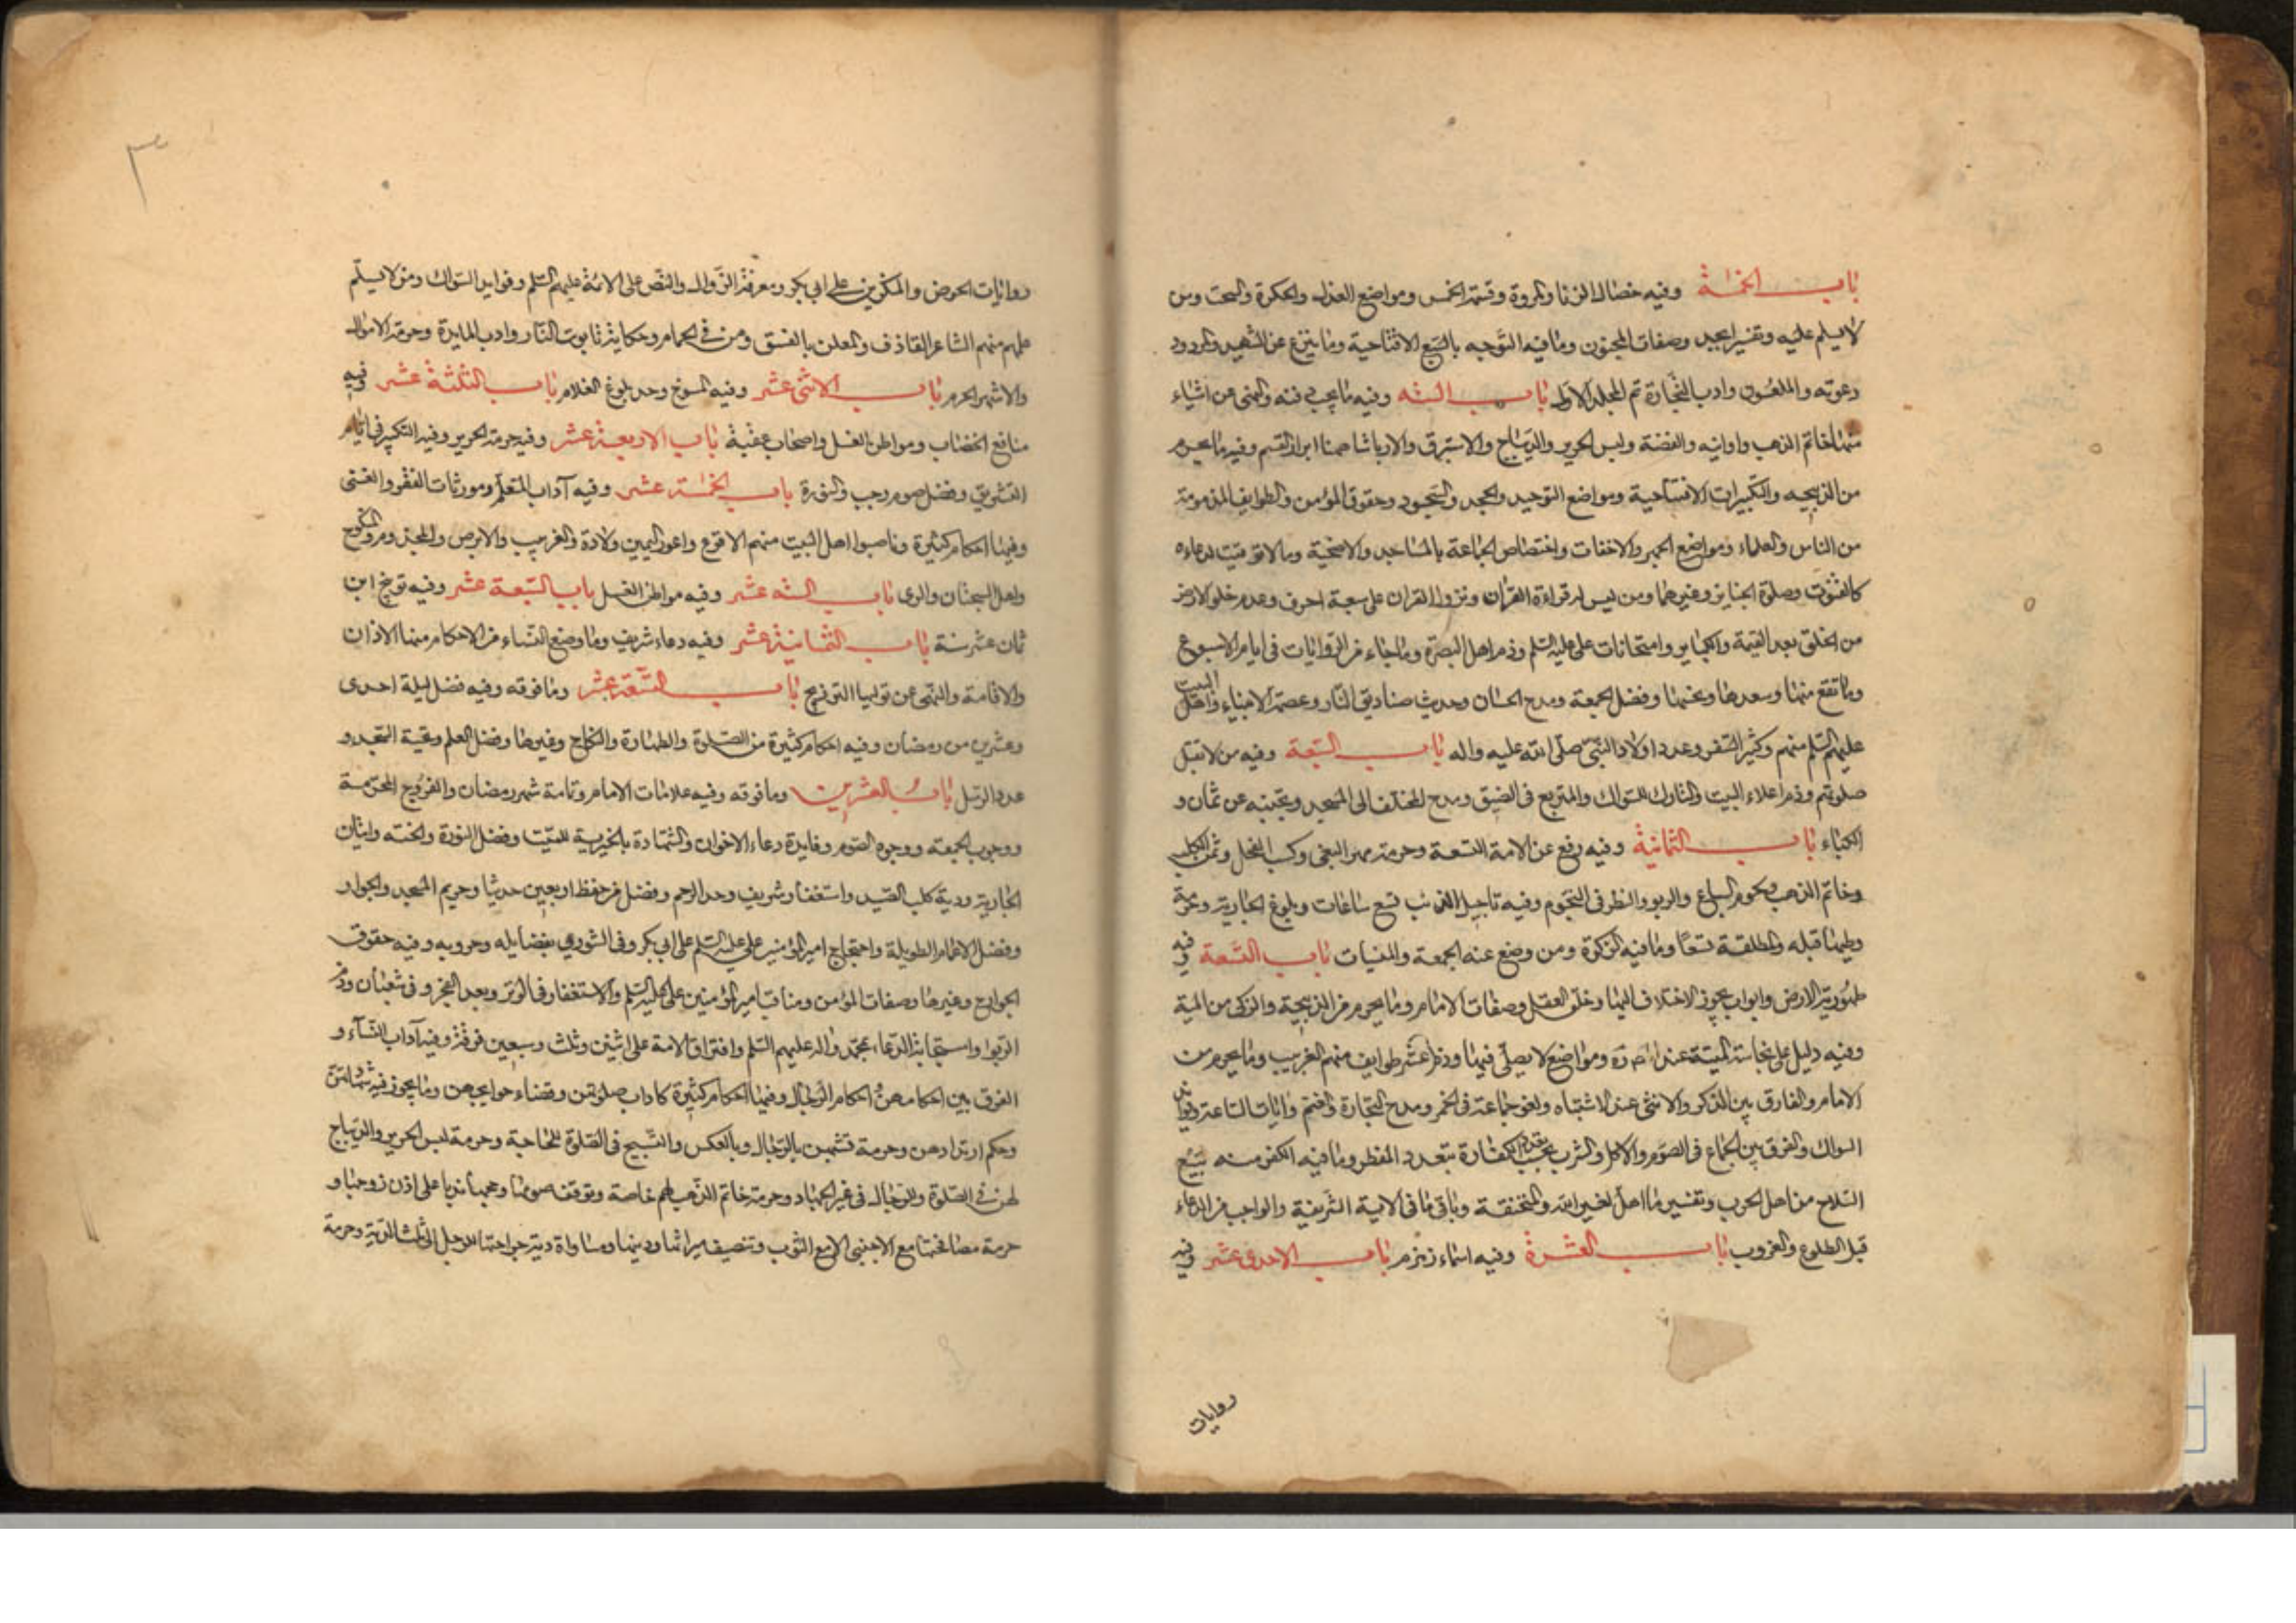 باب الخمسة وفيه خصال الزنا والمروة وقسمة الخمس ومواضع العذاب والحكرة والسحت ومن
لا يسلم عليه وتفسير ابجد وصفات المجنون وما فيه التوجه بالسبع الافتتاحية وما ينزع عن الشهيد والمردود
دعوته والملعون وادب التجارة تم المجلد الاول باب الستة وفيه ما يجب فيه والنهى عن اشياء
منها خاتم الذهب واوانيه والفضة ولبس الحرير والديباج والاستبرق والارباشا وفيه ما يحرم
من الذبيحه والتكبيرات الافتتاحية ومواضع التوحيد والجحد والسجود وحقوق المؤمن والطوايف المذمومة
من الناس والعلماء ومواضع الجهر والاخفات واختصاص الجماعة بالمساجد والاضحية وما لا توقيت لدعاءه
كالقنوت وصلوة الجنايز وغيرهما ومن ليس له قراءة القران ونزول القران على سبعة احرف وعدم خلو الارض
من الخلق بعد القيمة والكباير وامتحانات على عليه السلم وذم اهل البصرة وما جاء من الروايات فى ايام الاسبوع
وما تقع منها وسعدها ونحسها وفضل الجمعة ومدح الحسان وحديث صناديق النار وعصمة الانبياء واهل البيت
عليهم السلم منهم وكثير السفر وعدد اولاد النبى صلى الله عليه واله باب السبعة وفيه من لا تقبل
صلوتهم وذم اعلاء البيت والتارك للسواك والمتربع فى الضيق ومدح المختلف الى المسجد وتجنبه عن ثمان و
الكباء باب الثمانية وفيه رفع عن الامة التسعة وحرمة مهر البغى وكسب النحل وثمن الكلب
وخاتم الذهب ولحوم السباع والربو والنظر فى النجوم وفيه تاجيل المذنب تسع ساعات وبلوغ الجارية وحرمة
وطيها قبله والمطلقة تسعا وما فيه الزكوة ومن وضع عنه الجمعة والمنسيات باب التسعة وفيه
طهورية الارض وابواب يجوز الاختلاف اليها وخلق العقل وصفات الامام وما يحرم من الذبيحة والزكى من الميتة
وفيه دليل على نجاسة الميتة عند وموا ضع لا يصلى فيها وذم عشر طوايف منهم الغريب وما يحرم من
الامام والفارق بين الذكر والانثى عند الاشتباه ولغو جماعة فى الخمر ومدح التجارة والغنم وايات الساعة وثواب
السواك والفرق بين الجماع فى الصوم والاكل والشرب بحسب تعدد الكفارة بتعدد المفطر وما فيه الكفر منه بيع
السلاح من اهل الحرب وتفسير ما اهل لغير الله والمنخنقة وباقى ما فى الاية الشريفة والواجب من الدعاء
قبل الطلوع والغروب باب العشرة وفيه اسماء زمزم باب الاحدى عشر وفيه
روايات
روايات الحوض والمنكرين على ابى بكر ومعرفة الزوال والنص على الائمة عليهم السلم وفوايد السواك ومن لا يسلم
عليهم منهم الشاعر القاذف والمعلن بالفسق ومن فى الحمام وحكاية تابوت النار وادب المايدة وحرمة الاموال
والاشهر الحرم باب الاثنى عشر وفيه المسوخ وحد بلوغ الغلام باب الثلثة عشر وفيه
منافع الخضاب ومواطن الغسل واصحاب عقبة باب الاربعة عشر وفيه حرمة الحرير وفيه التكبير فى ايام
التشريق وفضل صوم رجب والنورة باب الخمسة عشر وفيه آداب المتعلم ومورثات الفقر والغنى
وفيها احكام كثيرة وناصبوا اهل البيت منهم الاقرع واعور اليمين ولادة والغريب والابرص والمجذوم والمنكوح
واهل السجستان والرى باب الستة عشر وفيه مواطن الغسل باب السبعة عشر وفيه توبيخ ابن
ثمان عشر سنة باب الثمانية عشر وفيه دعاء شريف وما وضع النساء من الاحكام منها الاذان
والاقامة والنهى عن توليها التزويج باب التسعة عشر وما فوقه وفيه فضل ليلة احدى
وعشرين من رمضان وفيه احكام كثيرة من الصلوة والطهارة والنكاح وغيرها وفضل العلم وتحية المسجد و
عدد الرسل باب العشرين وما فوقه وفيه علامات الامام وتامة شهر رمضان والفروج المحرمة
ووجوب الجمعة ووجوه الصوم وفايدة دعاء الاخوان والشهادة بالخيرية للميت وفضل النورة والختنه واتيان
الجارية ودية كلب الصيد واستغفار شريف وحد الرحم وفضل من حفظ اربعين حديثا وحريم المسجد والجوار
وفضل الاعمار الطويلة واحتجاج امير المؤمنين على عليه السلم على ابى بكر وفى الشورى بفضايله وحروبه وفيه حقوق
الجوارح وغيرها وصفات المؤمن ومناقب امير المؤمنين على عليه السلم والاستغفار فى الوتر وبعد الفجر و فى شعبان وذم
الربوا واستجابة الدعاء بمحمد واله عليهم السلم وافتراق الامة على اثنين وثلث وسبعين فرقة وفيه آداب النساء و
الفرق بين احكامهن واحكام الرجال وفيها احكام كثيرة كاداب صلوتهن وقضاء حوايجهن وما يجوز فيه شهادتهن
وحكم ارتدادهن وحرمة تشبههن بالرجال وبالعكس والتسبيح فى الصلوة للحاجة وحرمة لبس الحرير والديباج
لهن فى الصلوة وللرجال فى غير الجهاد وحرمة خاتم الذهب لهم خاصة وتوقف صومها وحجها ندبا على اذن زوجها و
حرمة مصافحتها مع الاجنبى الا مع الثوب وتنصيف ميراثها ودينها ومساواة دية جراحتها للرجل الى ثلث الدية وحرمة
٣